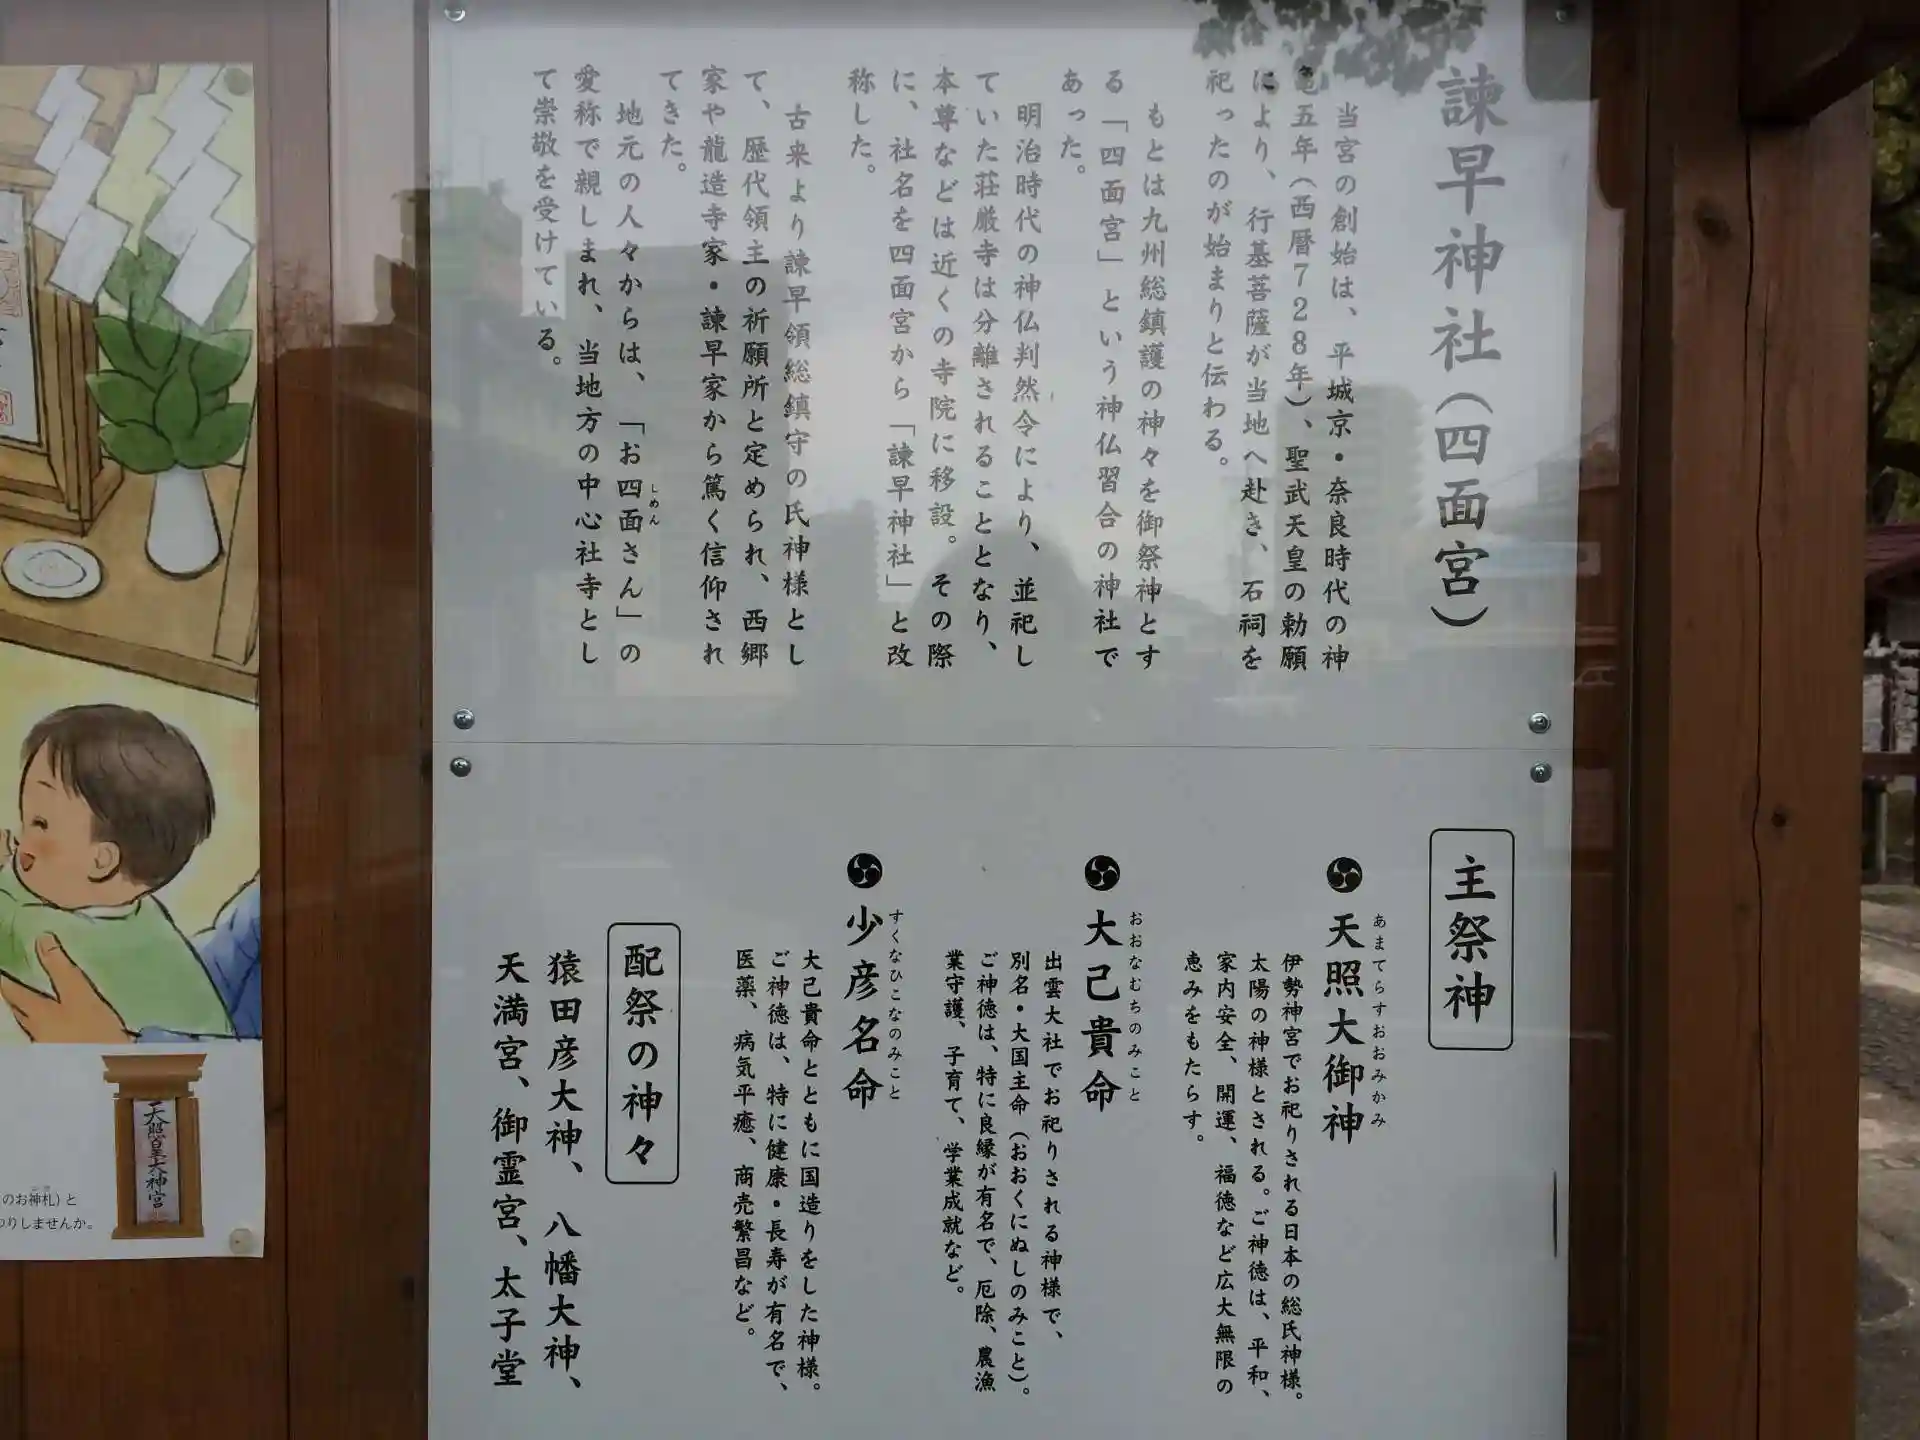 諫早神社(四面宮)
当宮の創始は、平城京・奈良時代の神
亀五年(西暦728年)、聖武天皇の勅願
により、行基菩薩が当地へ赴き、石祠を
祀ったのが始まりと伝わる。
もとは九州総鎮護の神々を御祭神とす
る「四面宮」という神仏習合の神社で
あった。
明治時代の神仏判然令により、並祀し
ていた荘厳寺は分離されることとなり、
本尊などは近くの寺院に移設。その際
に、社名を四面宮から「諫早神社」と改
称した。
古来より諫早領総鎮守の氏神様とし
て、歴代領主の祈願所と定められ、西郷
家や龍造寺家・諫早家から篤く信仰され
てきた。
地元の人々からは、「お四面さん」の
しめん
愛称で親しまれ、当地方の中心社寺とし
て崇敬を受けている。
主祭神
天照大御神
あまてらすおおみかみ
伊勢神宮でお祀りされる日本の総氏神様。
太陽の神様とされる。ご神徳は、平和、
家内安全、開運、福徳など広大無限の
恵みをもたらす。
大己貴命
おおなむちのみこと
出雲大社でお祀りされる神様で、
別名・大国主命(おおくにぬしのみこと)。
ご神徳は、特に良縁が有名で、厄除、農漁
業守護、子育て、学業成就など。
少彦名命
すくなひこなのみこと
大己貴命とともに国造りをした神様。
ご神徳は、特に健康・長寿が有名で、
医薬、病気平癒、商売繁昌など。
配祭の神々
猿田彦大神、八幡大神、
天満宮、御霊宮、太子堂
天照皇大神宮
のお神札)と
りしませんか。